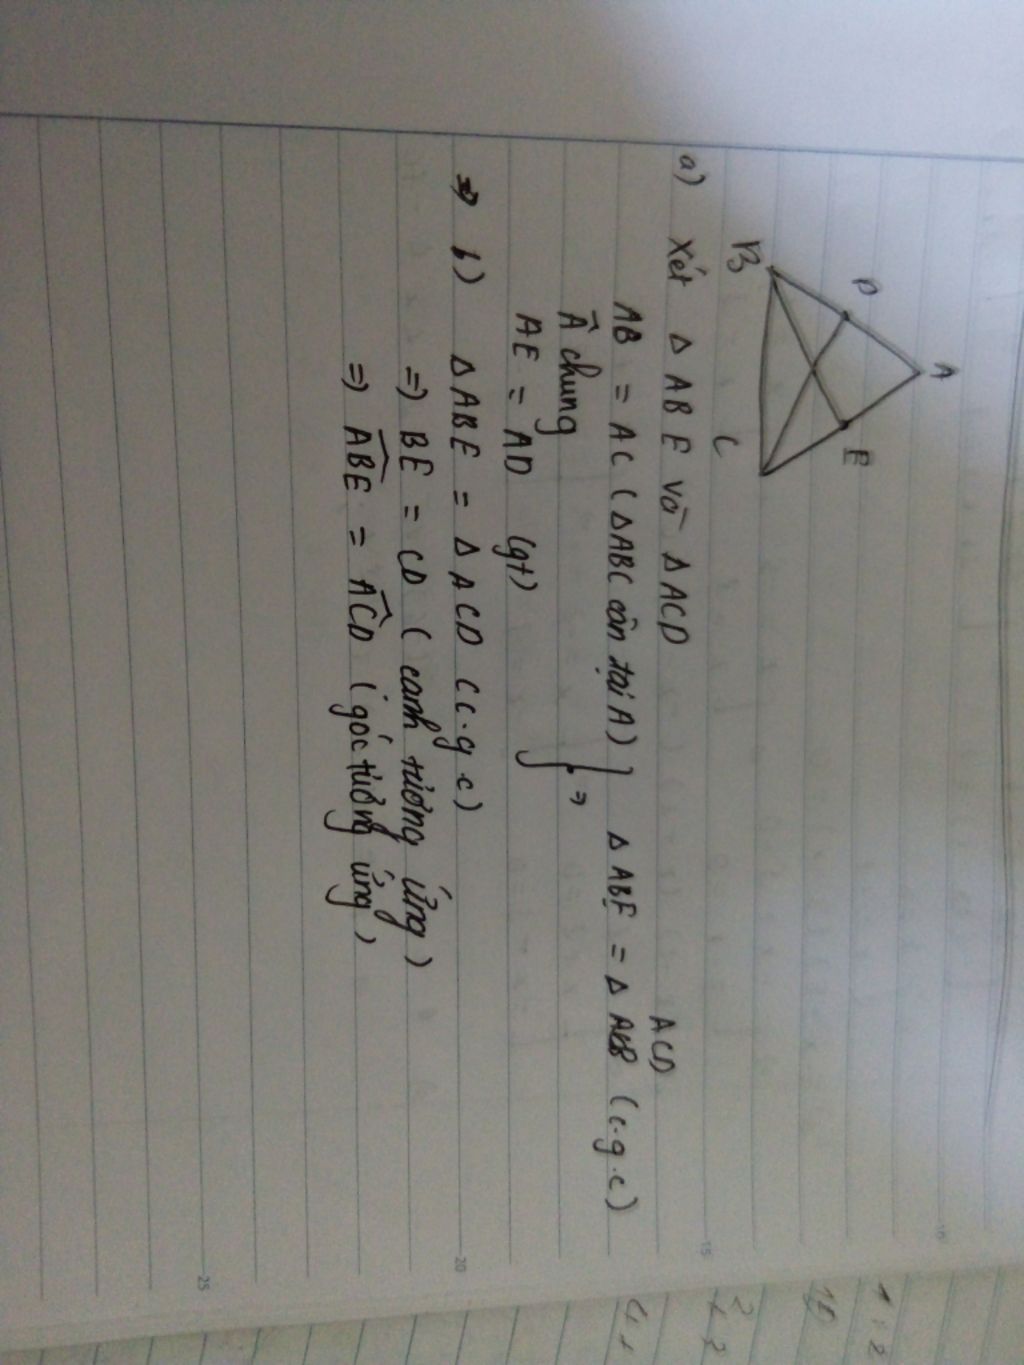 A
D
E
B
C
a) Xét Δ ABE và Δ ACD
AB = AC (ΔABC cân tại A)
Â chung
AE = AD (gt)
} ⇒ Δ ABE = Δ ACD (c.g.c)
⇒ b) Δ ABE = Δ ACD (c.g.c)
⇒ BE = CD (cạnh tương ứng)
⇒ ABE = ACD (góc tương ứng)
15
20
25